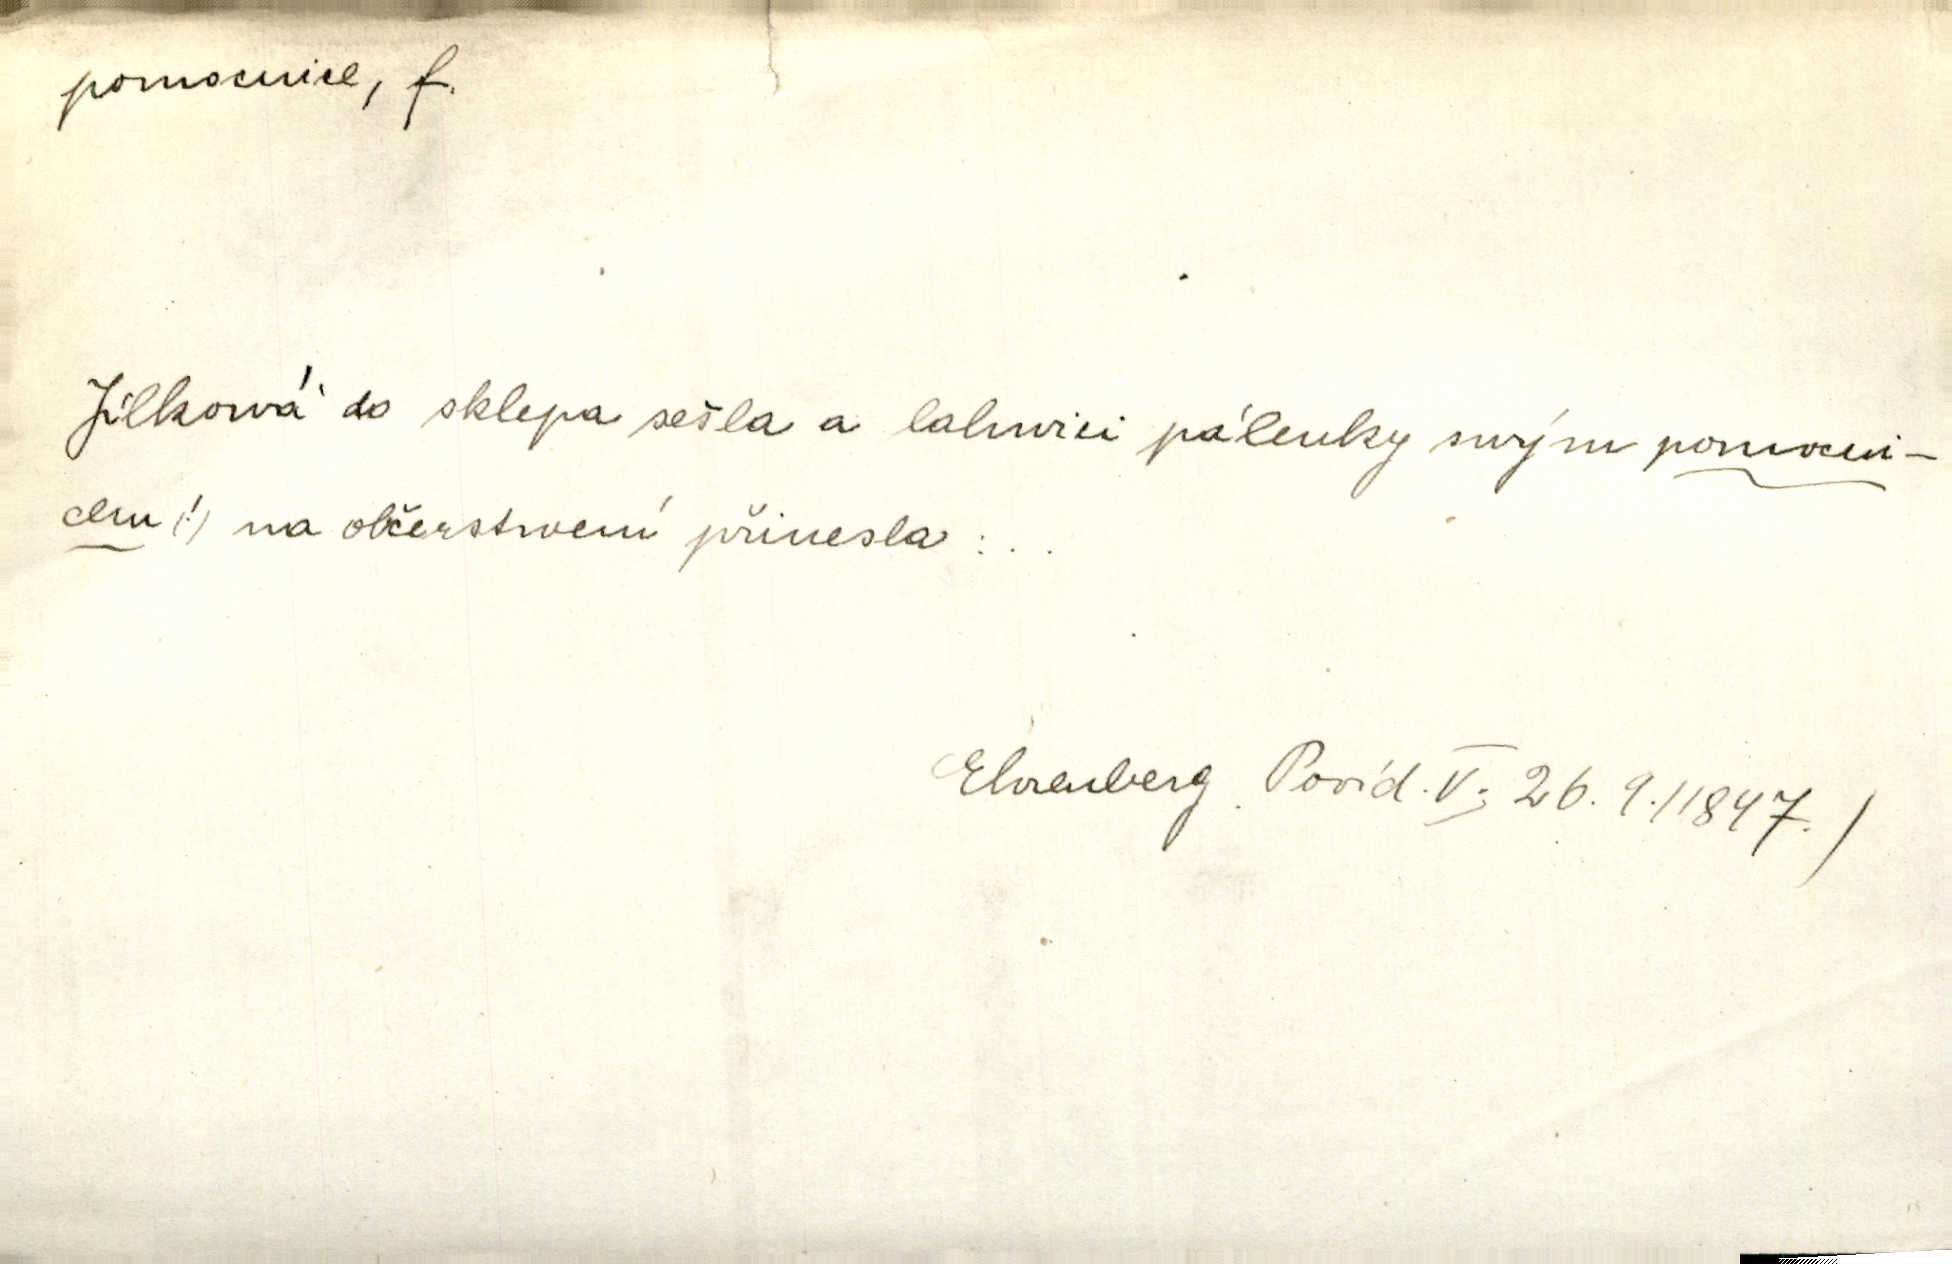 pomocnice, f.
Jílková do sklepa sešla a lahvici pálenky svým pomocni-
cem (!) na občerstvení přinesla : . .
Ehrenberg Povíd. V; 26. 9./1847. /